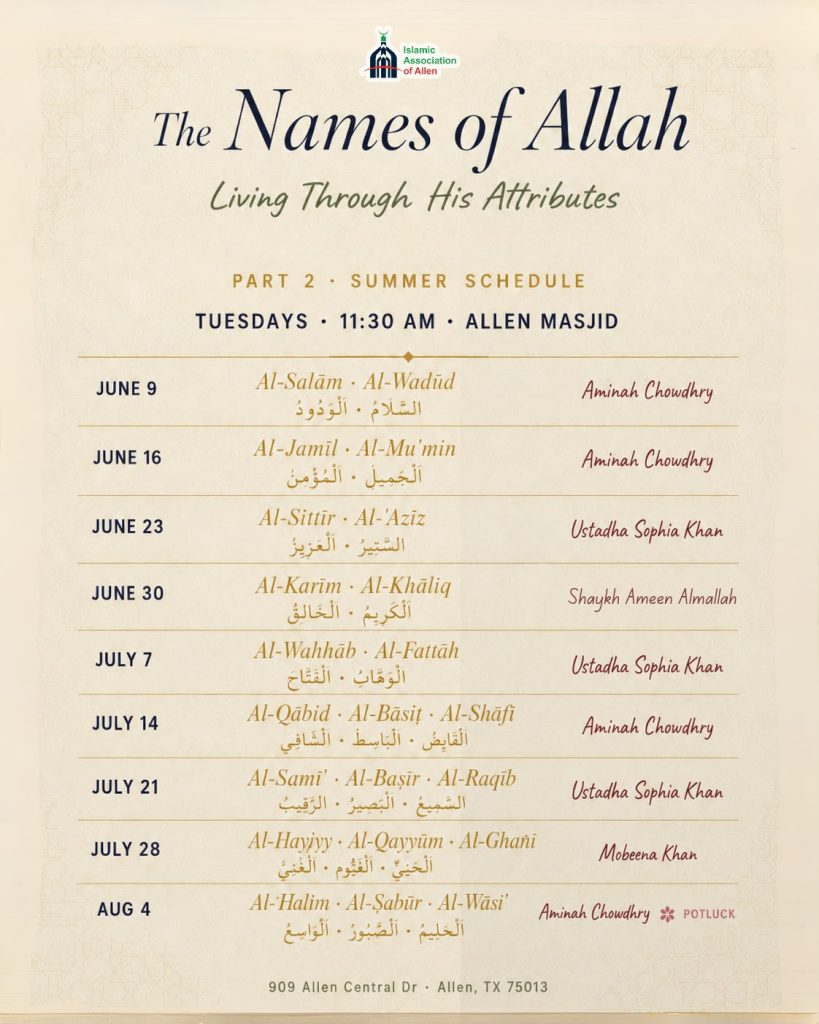 Islamic
Association
of Allen
The Names of Allah
Living Through His Attributes
PART 2 · SUMMER SCHEDULE
TUESDAYS · 11:30 AM · ALLEN MASJID
JUNE 9
Al-Salām · Al-Wadūd
السَّلَامُ · اَلْوَدُودُ
Aminah Chowdhry
JUNE 16
Al-Jamīl · Al-Mu'min
اَلْجَمِيلَ · اَلْمُؤْمِنُ
Aminah Chowdhry
JUNE 23
Al-Sittīr · Al-'Azīz
السَّتِيرُ · اَلْعَزِيزُ
Ustadha Sophia Khan
JUNE 30
Al-Karīm · Al-Khāliq
اَلْكَرِيمُ · اَلْخَالِقُ
Shaykh Ameen Almallah
JULY 7
Al-Wahhāb · Al-Fattāh
الْوَهَّابُ · الْفَتَّاحَ
Ustadha Sophia Khan
JULY 14
Al-Qābid · Al-Bāsiṭ · Al-Shāfī
الْقَابِضُ · الْبَاسِطَ · الْشَّافِي
Aminah Chowdhry
JULY 21
Al-Samī' · Al-Baṣīr · Al-Raqīb
السَّمِيعُ · الْبَصِيرُ · الرَّقِيبُ
Ustadha Sophia Khan
JULY 28
Al-Hayyy · Al-Qayyūm · Al-Ghanī
Mobeena Khan
AUG 4
Al-Halim · Al-Ṣabūr · Al-Wāsi'
اَلْحَلِيمُ · اَلصَّبُورُ · اَلْوَاسِعُ
Aminah Chowdhry POTLUCK
909 Allen Central Dr · Allen, TX 75013